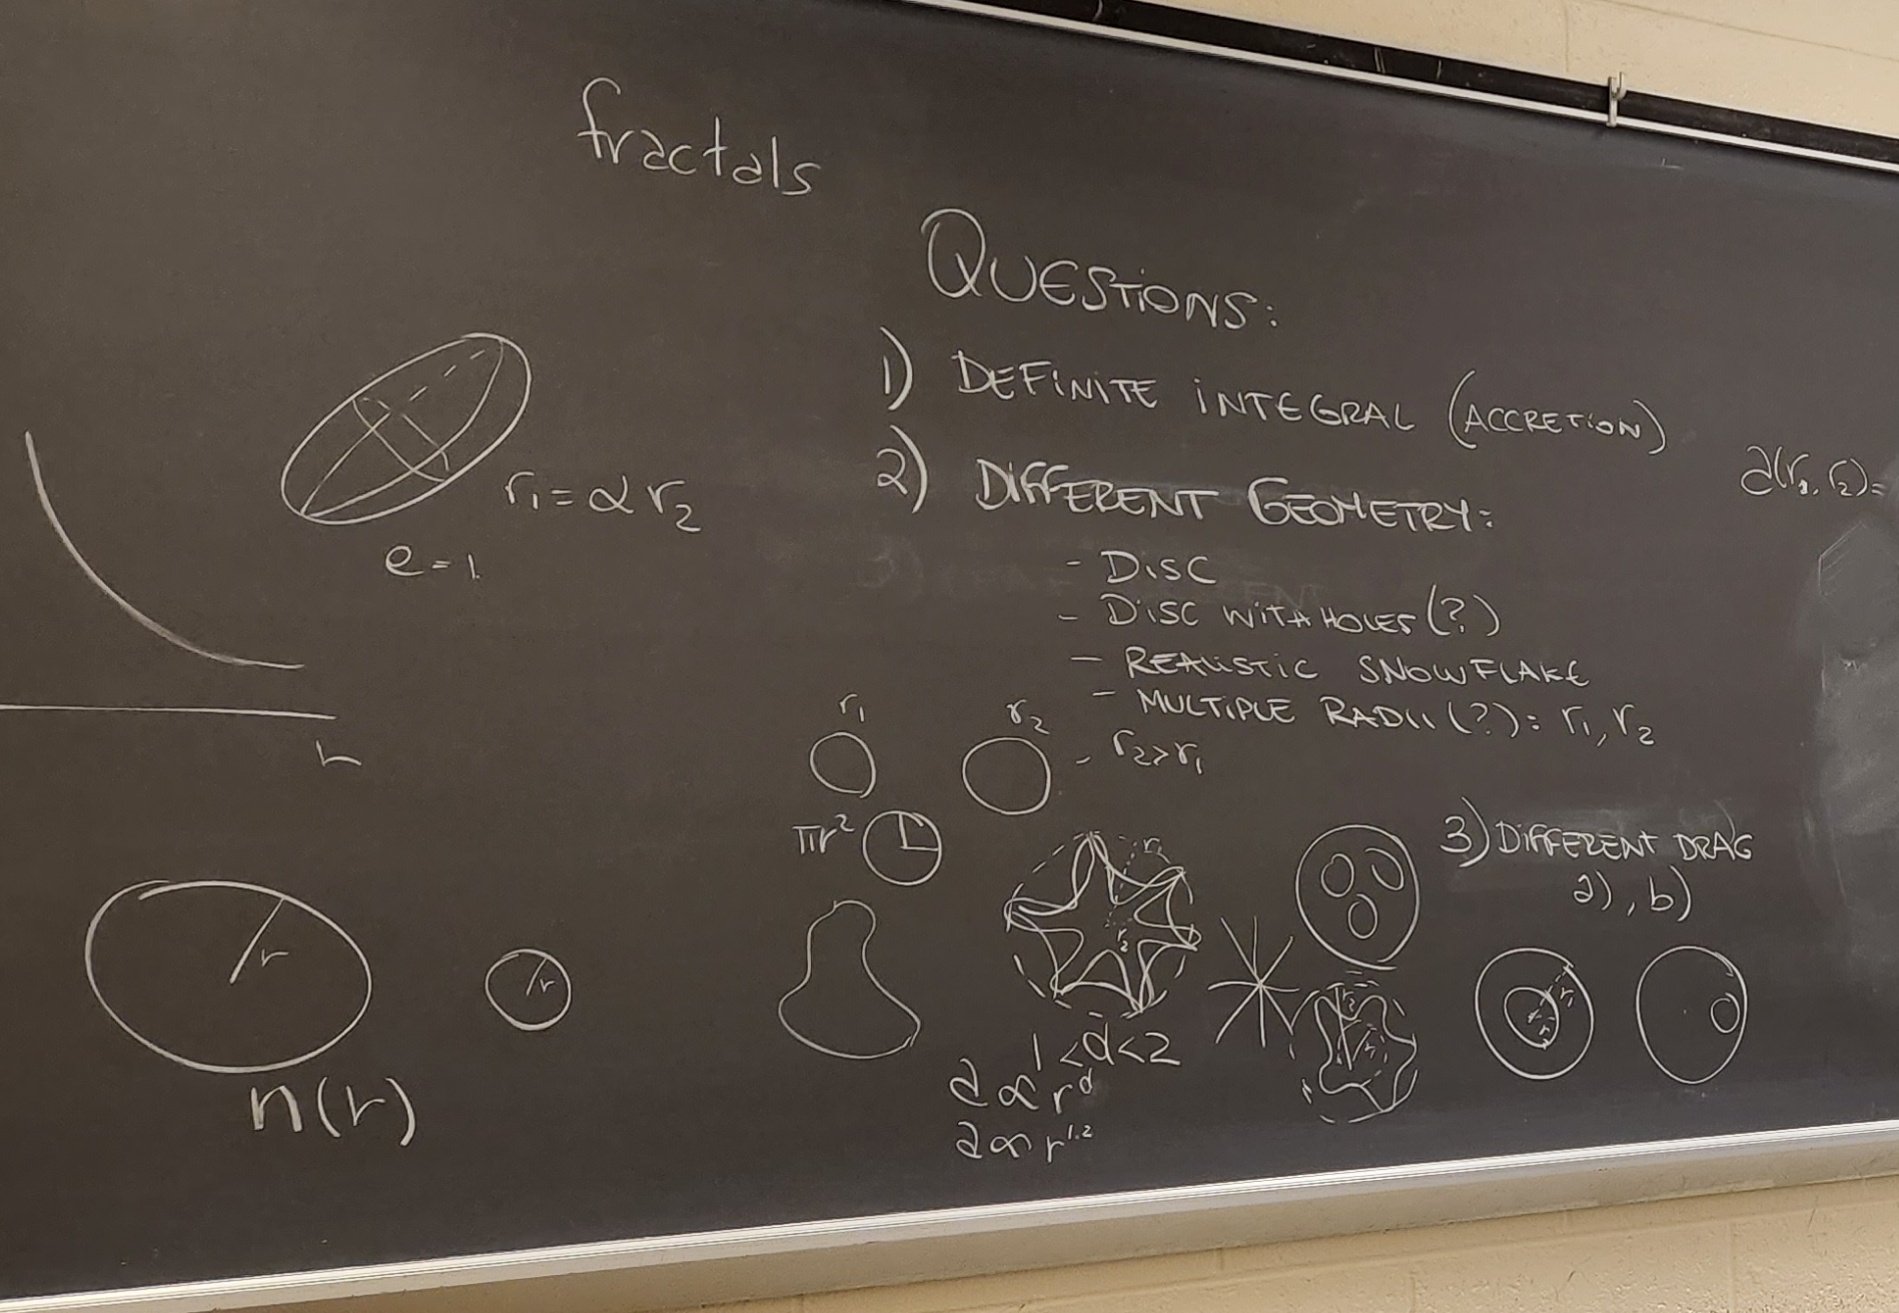 fractals
QUESTIONS:
1) DEFINITE INTEGRAL (ACCRETION)
2) DIFFERENT GEOMETRY:
- DISC
- DISC WITH HOLES (?)
- REALISTIC SNOWFLAKE
- MULTIPLE RADII (?): r₁, r₂
- r₂>r₁
a(r₁, r₂)=
r₁ = α r₂
e=1
r
r₁
r₂
πr²
3) DIFFERENT DRAG
a), b)
r₁
r₂
r
r
n(r)
1<d<2
a ∝ r^d
a ∝ r^1.2
r₂
r₁
r₁
r